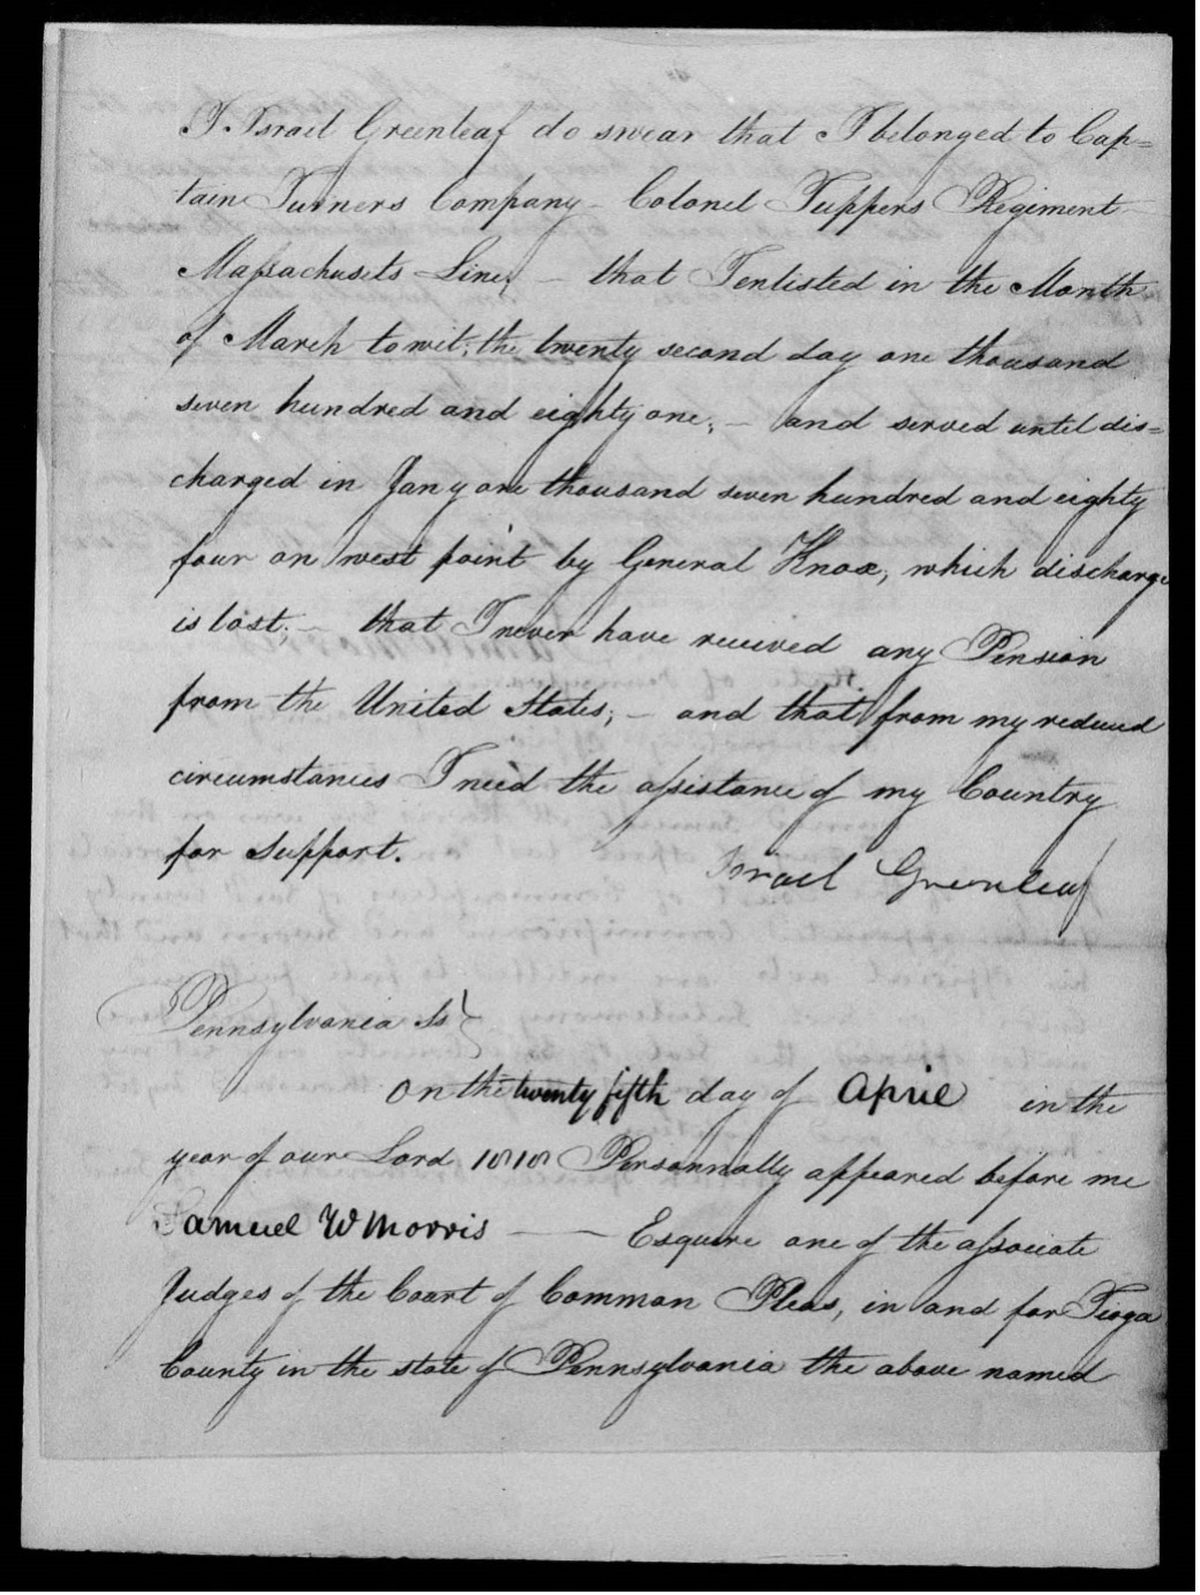 I Israel Greenleaf do swear that I belonged to Cap=
tain Turners Company – Colonel Tuppers Regiment
Massachusets Line; – that I enlisted in the Month
of March to wit; the twenty second day one thousand
seven hundred and eighty one; – and served until dis=
charged in Jany one thousand seven hundred and eighty
four on west point by General Knox, which discharge
is lost; – that I never have received any Pension
from the United States; – and that from my reduced
circumstances I need the assistance of my Country
for support.
Israel Greenleaf
Pennsylvania Ss }
On the twenty fifth day of April in the
year of our Lord 1818 Personnally appeared before me
Samuel W Morris — — Esquire one of the associate
Judges of the Court of Common Pleas, in and for Tioga
County in the state of Pennsylvania the above named